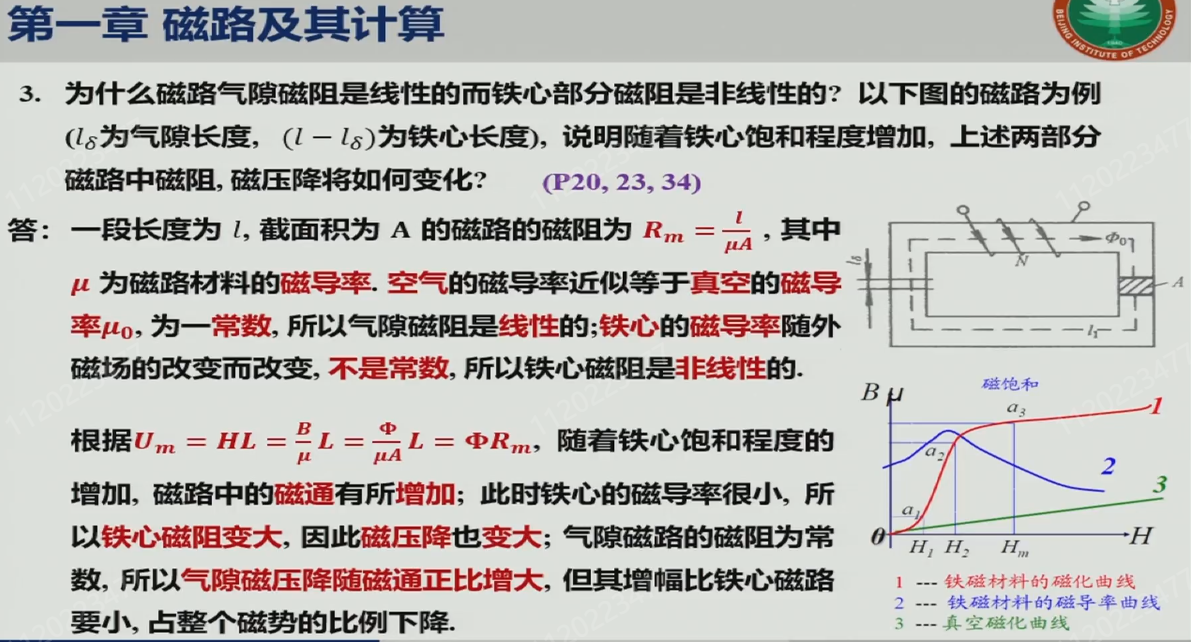 第一章 磁路及其计算
BEIJING INSTITUTE OF TECHNOLOGY
3. 为什么磁路气隙磁阻是线性的而铁心部分磁阻是非线性的? 以下图的磁路为例
(l_δ为气隙长度, (l − l_δ)为铁心长度), 说明随着铁心饱和程度增加, 上述两部分
磁路中磁阻, 磁压降将如何变化? (P20, 23, 34)
答: 一段长度为 l, 截面积为 A 的磁路的磁阻为 R_m = l/μA, 其中
μ 为磁路材料的磁导率. 空气的磁导率近似等于真空的磁导
率μ₀, 为一常数, 所以气隙磁阻是线性的;铁心的磁导率随外
磁场的改变而改变, 不是常数, 所以铁心磁阻是非线性的.
根据U_m = HL = B/μ L = Φ/μA L = ΦR_m, 随着铁心饱和程度的
增加, 磁路中的磁通有所增加; 此时铁心的磁导率很小, 所
以铁心磁阻变大, 因此磁压降也变大; 气隙磁路的磁阻为常
数, 所以气隙磁压降随磁通正比增大, 但其增幅比铁心磁路
要小, 占整个磁势的比例下降.
Φ₀
N
l_δ
A
l₁
B μ
磁饱和
a₃
1
a₂
2
3
a₁
0
H₁ H₂ H_m
H
1 --- 铁磁材料的磁化曲线
2 --- 铁磁材料的磁导率曲线
3 --- 真空磁化曲线